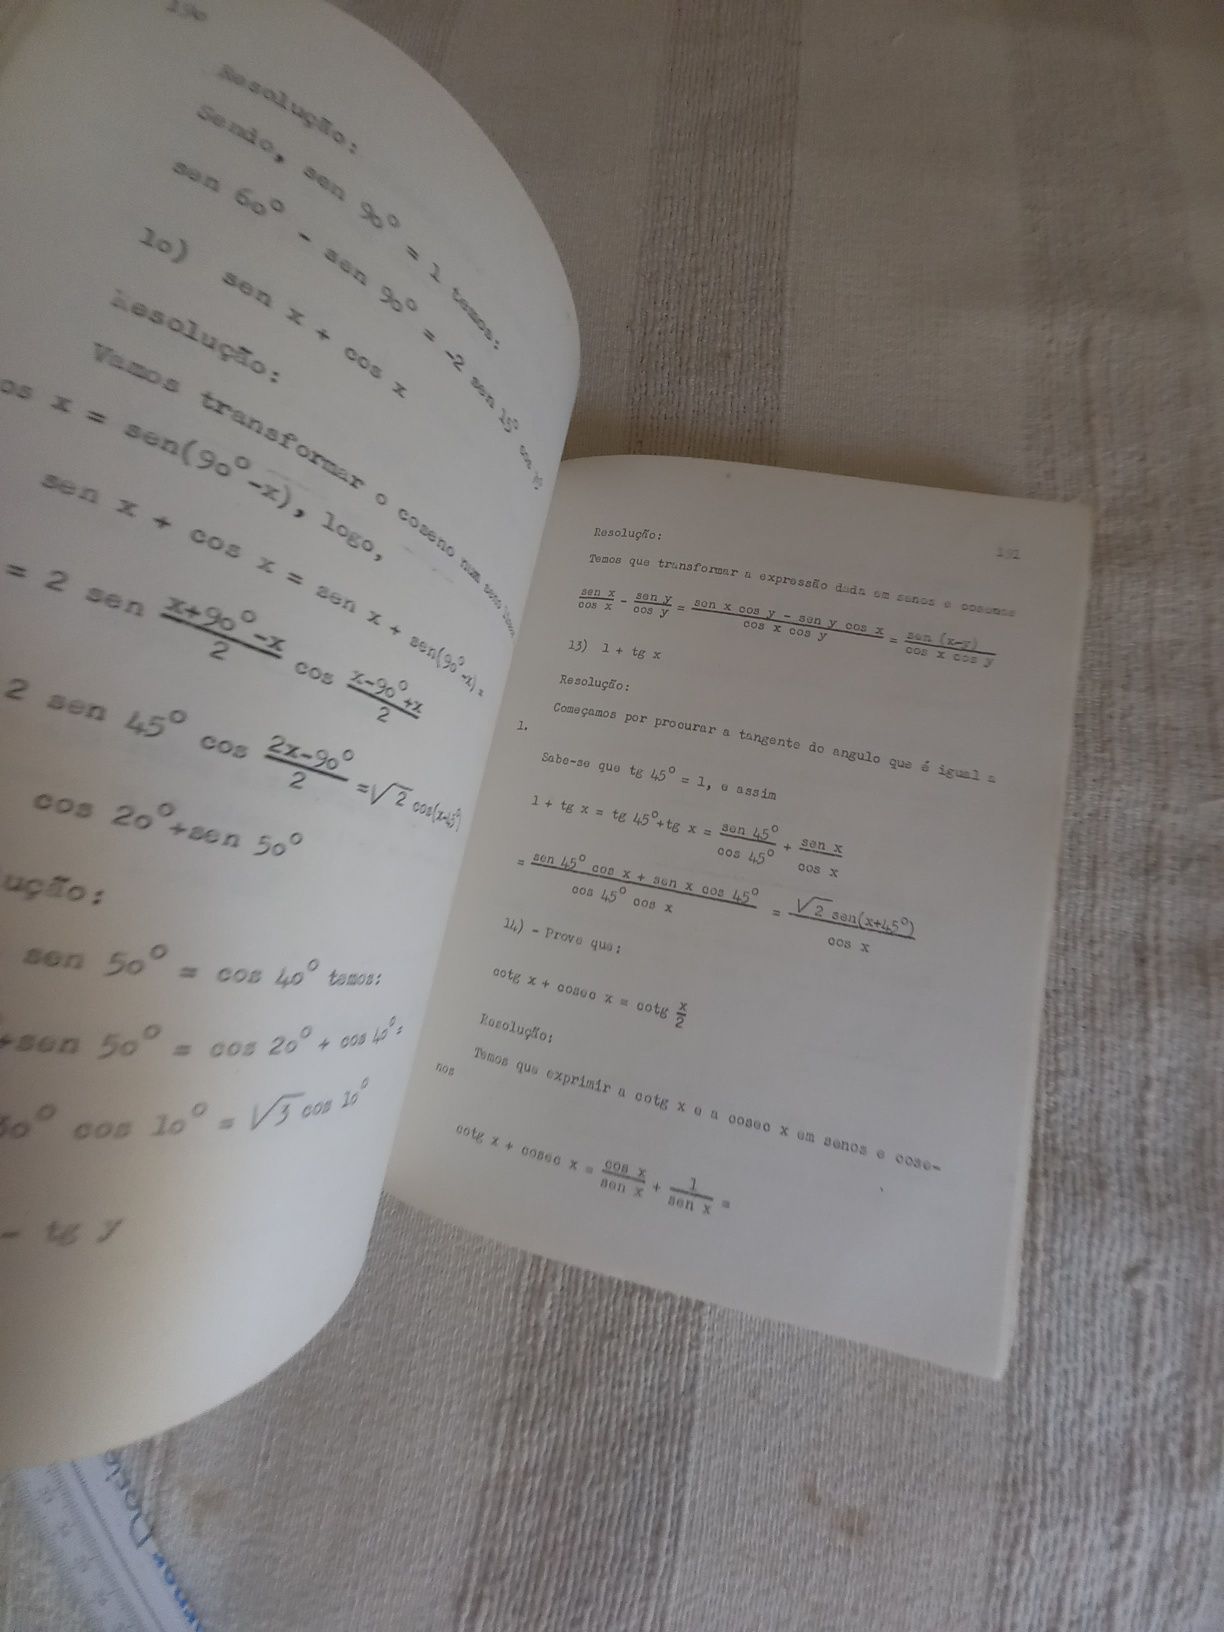 190
Resolução:
Sendo, sen 90° = 1 temos:
sen 60° - sen 90° = -2 sen 15° cos
10) sen x + cos x
Resolução:
Vamos transformar o coseno num seno
os x = sen(90°-x), logo,
sen x + cos x = sen x + sen(90°-x) =
= 2 sen (x+90°-x)/2 cos (x-90°+x)/2
2 sen 45° cos (2x-90°)/2 = √2 cos(x-45°)
cos 20°+sen 50°
ução:
sen 50° = cos 40° temos:
+sen 50° = cos 20° + cos 40° =
30° cos 10° = √3 cos 10°
- tg y
191
Resolução:
Temos que transformar a expressão dada em senos e cosenos
sen x/cos x - sen y/cos y = (sen x cos y - sen y cos x)/(cos x cos y) = sen (x-y)/(cos x cos y)
13) 1 + tg x
Resolução:
Começamos por procurar a tangente do angulo que é igual a
1.
Sabe-se que tg 45° = 1, e assim
1 + tg x = tg 45°+tg x = sen 45°/cos 45° + sen x/cos x
= (sen 45° cos x + sen x cos 45°)/(cos 45° cos x) = √2 sen(x+45°)/cos x
14) - Prove que:
cotg x + cosec x = cotg x/2
Resolução:
Temos que exprimir a cotg x e a cosec x em senos e cose-
nos
cotg x + cosec x = cos x/sen x + 1/sen x =